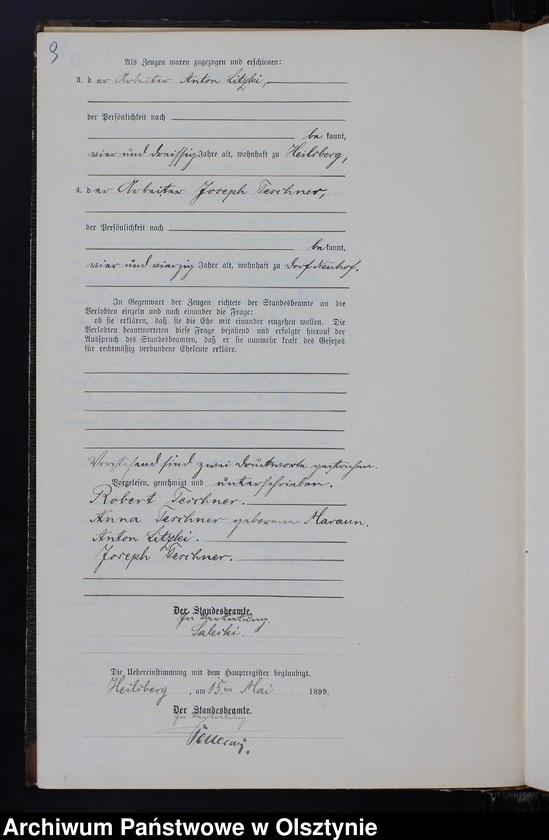 9
Als Zeugen waren zugezogen und erschienen:
3. der Arbeiter Anton Litzki,
der Persönlichkeit nach
bekannt,
vier und dreissig Jahre alt, wohnhaft zu Heilsberg,
4. der Arbeiter Joseph Terschner,
der Persönlichkeit nach
bekannt,
vier und vierzig Jahre alt, wohnhaft zu Dorf Neuhof.
In Gegenwart der Zeugen richtete der Standesbeamte an die
Verlobten einzeln und nach einander die Frage:
ob sie erklären, daß sie die Ehe mit einander eingehen wollen. Die
Verlobten beantworteten diese Frage bejahend und erfolgte hierauf der
Ausspruch des Standesbeamten, daß er sie nunmehr kraft des Gesetzes
für rechtmäßig verbundene Eheleute erkläre.
Vorstehend sind zwei Druckworte gestrichen.
Vorgelesen, genehmigt und unterschrieben.
Robert Terschner.
Anna Terschner geborene Maraun.
Anton Litzki.
Joseph Terschner.
Der Standesbeamte.
In Vertretung.
Saleski.
Die Uebereinstimmung mit dem Hauptregister beglaubigt.
Heilsberg, am 15.ten Mai 1899.
Der Standesbeamte.
In Vertretung
Archiwum Państwowe w Olsztynie